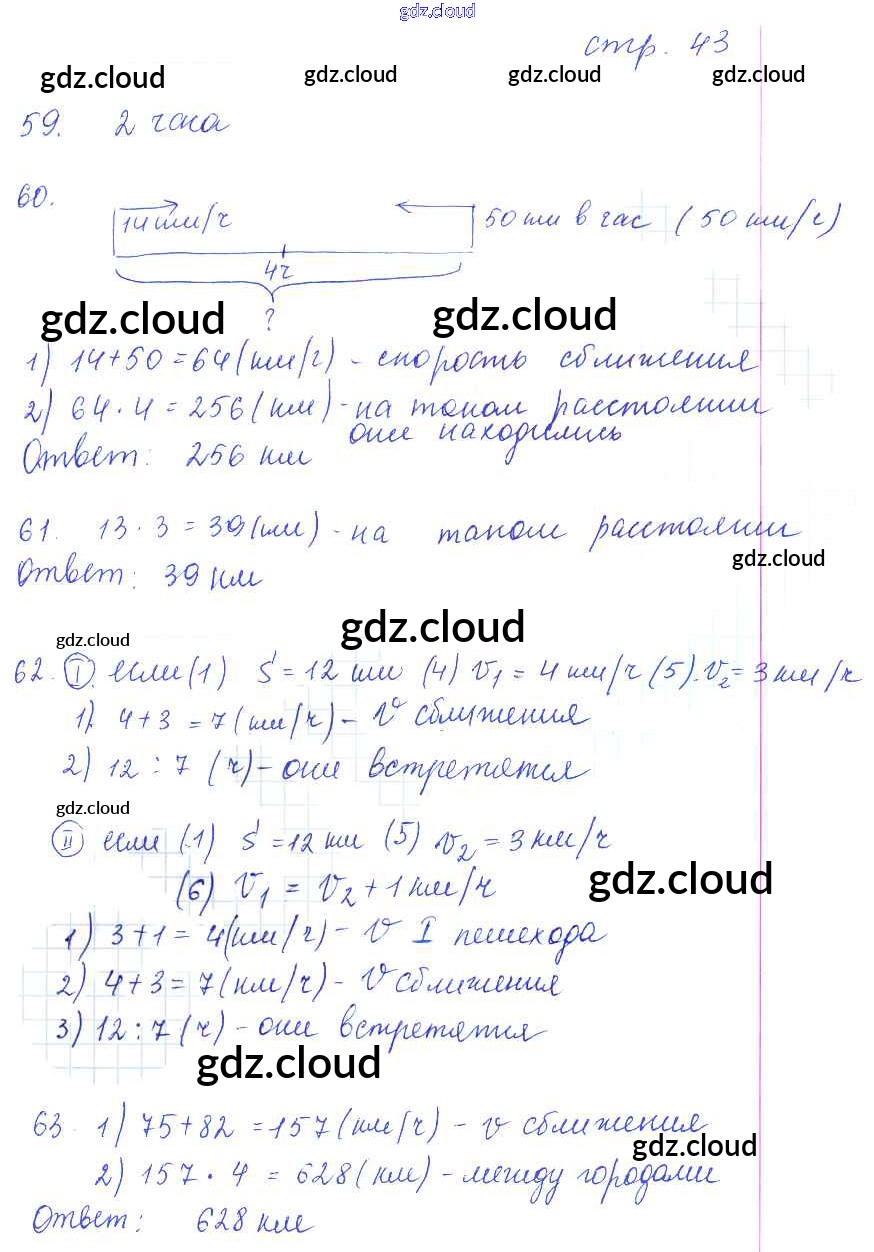 gdz.cloud
стр. 43
gdz.cloud gdz.cloud gdz.cloud gdz.cloud
59. 2 часа
60.
14 км/ч 50 км в час (50 км/ч)
4ч
?
gdz.cloud gdz.cloud
1) 14+50=64(км/ч) - скорость сближения
2) 64·4=256(км) - на таком расстоянии
они находились
Ответ: 256 км
61. 13·3=39(км) - на таком расстоянии
gdz.cloud
Ответ: 39 км
gdz.cloud
gdz.cloud
62. I. если (1) S=12 км (4) v₁=4 км/ч (5). v₂=3 км/ч
1). 4+3=7(км/ч) - v сближения
2) 12:7 (ч) - они встретятся
gdz.cloud
II если (1) S=12 км (5) v₂=3 км/ч
(6) v₁=v₂+1 км/ч
gdz.cloud
1) 3+1=4(км/ч) - v I пешехода
2) 4+3=7(км/ч) - v сближения
3) 12:7(ч) - они встретятия
gdz.cloud
63. 1) 75+82=157(км/ч) - v сближения
gdz.cloud
2) 157·4=628(км) - между городами
Ответ: 628 км